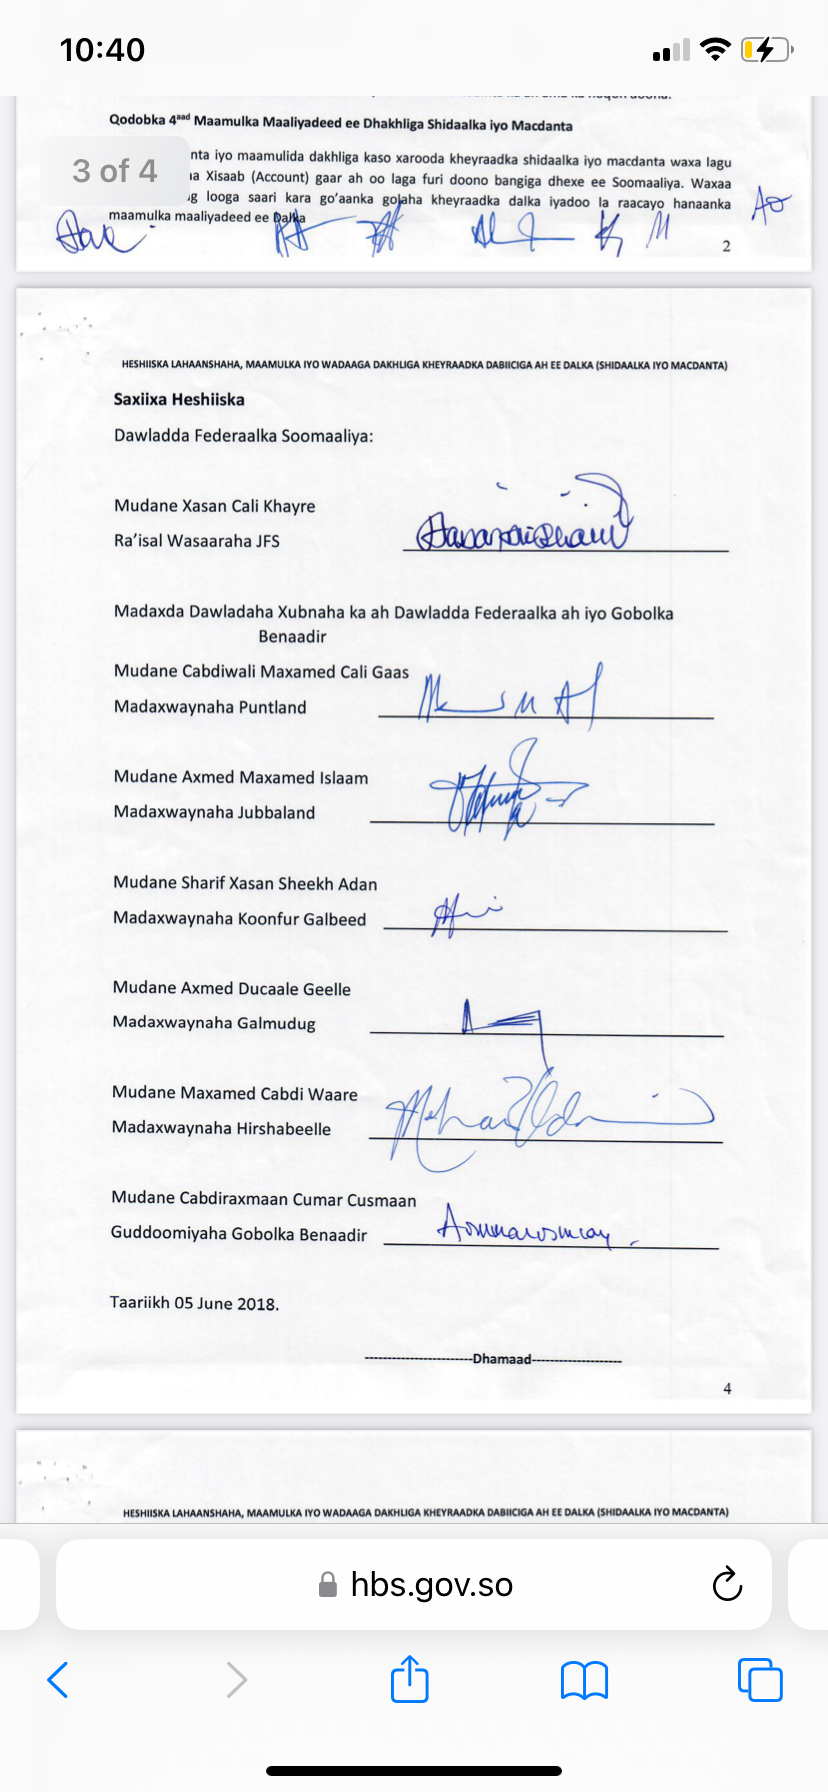 10:40
Qodobka 4aad Maamulka Maaliyadeed ee Dhakhliga Shidaalka iyo Macdanta
3 of 4
nta iyo maamulida dakhliga kaso xarooda kheyraadka shidaalka iyo macdanta waxa lagu
Xisaab (Account) gaar ah oo laga furi doono bangiga dhexe ee Soomaaliya. Waxaa
looga saari kara go'aanka golaha kheyraadka dalka iyadoo la raacayo hanaanka
maamulka maaliyadeed ee Dalka
2
HESHIISKA LAHAANSHAHA, MAAMULKA IYO WADAAGA DAKHLIGA KHEYRAADKA DABIICIGA AH EE DALKA (SHIDAALKA IYO MACDANTA)
Saxiixa Heshiiska
Dawladda Federaalka Soomaaliya:
Mudane Xasan Cali Khayre
Ra'isal Wasaaraha JFS
Madaxda Dawladaha Xubnaha ka ah Dawladda Federaalka ah iyo Gobolka
Benaadir
Mudane Cabdiwali Maxamed Cali Gaas
Madaxwaynaha Puntland
Mudane Axmed Maxamed Islaam
Madaxwaynaha Jubbaland
Mudane Sharif Xasan Sheekh Adan
Madaxwaynaha Koonfur Galbeed
Mudane Axmed Ducaale Geelle
Madaxwaynaha Galmudug
Mudane Maxamed Cabdi Waare
Madaxwaynaha Hirshabeelle
Mudane Cabdiraxmaan Cumar Cusmaan
Guddoomiyaha Gobolka Benaadir
Taariikh 05 June 2018.
------------------------Dhamaad--------------------
4
HESHIISKA LAHAANSHAHA, MAAMULKA IYO WADAAGA DAKHLIGA KHEYRAADKA DABIICIGA AH EE DALKA (SHIDAALKA IYO MACDANTA)
hbs.gov.so